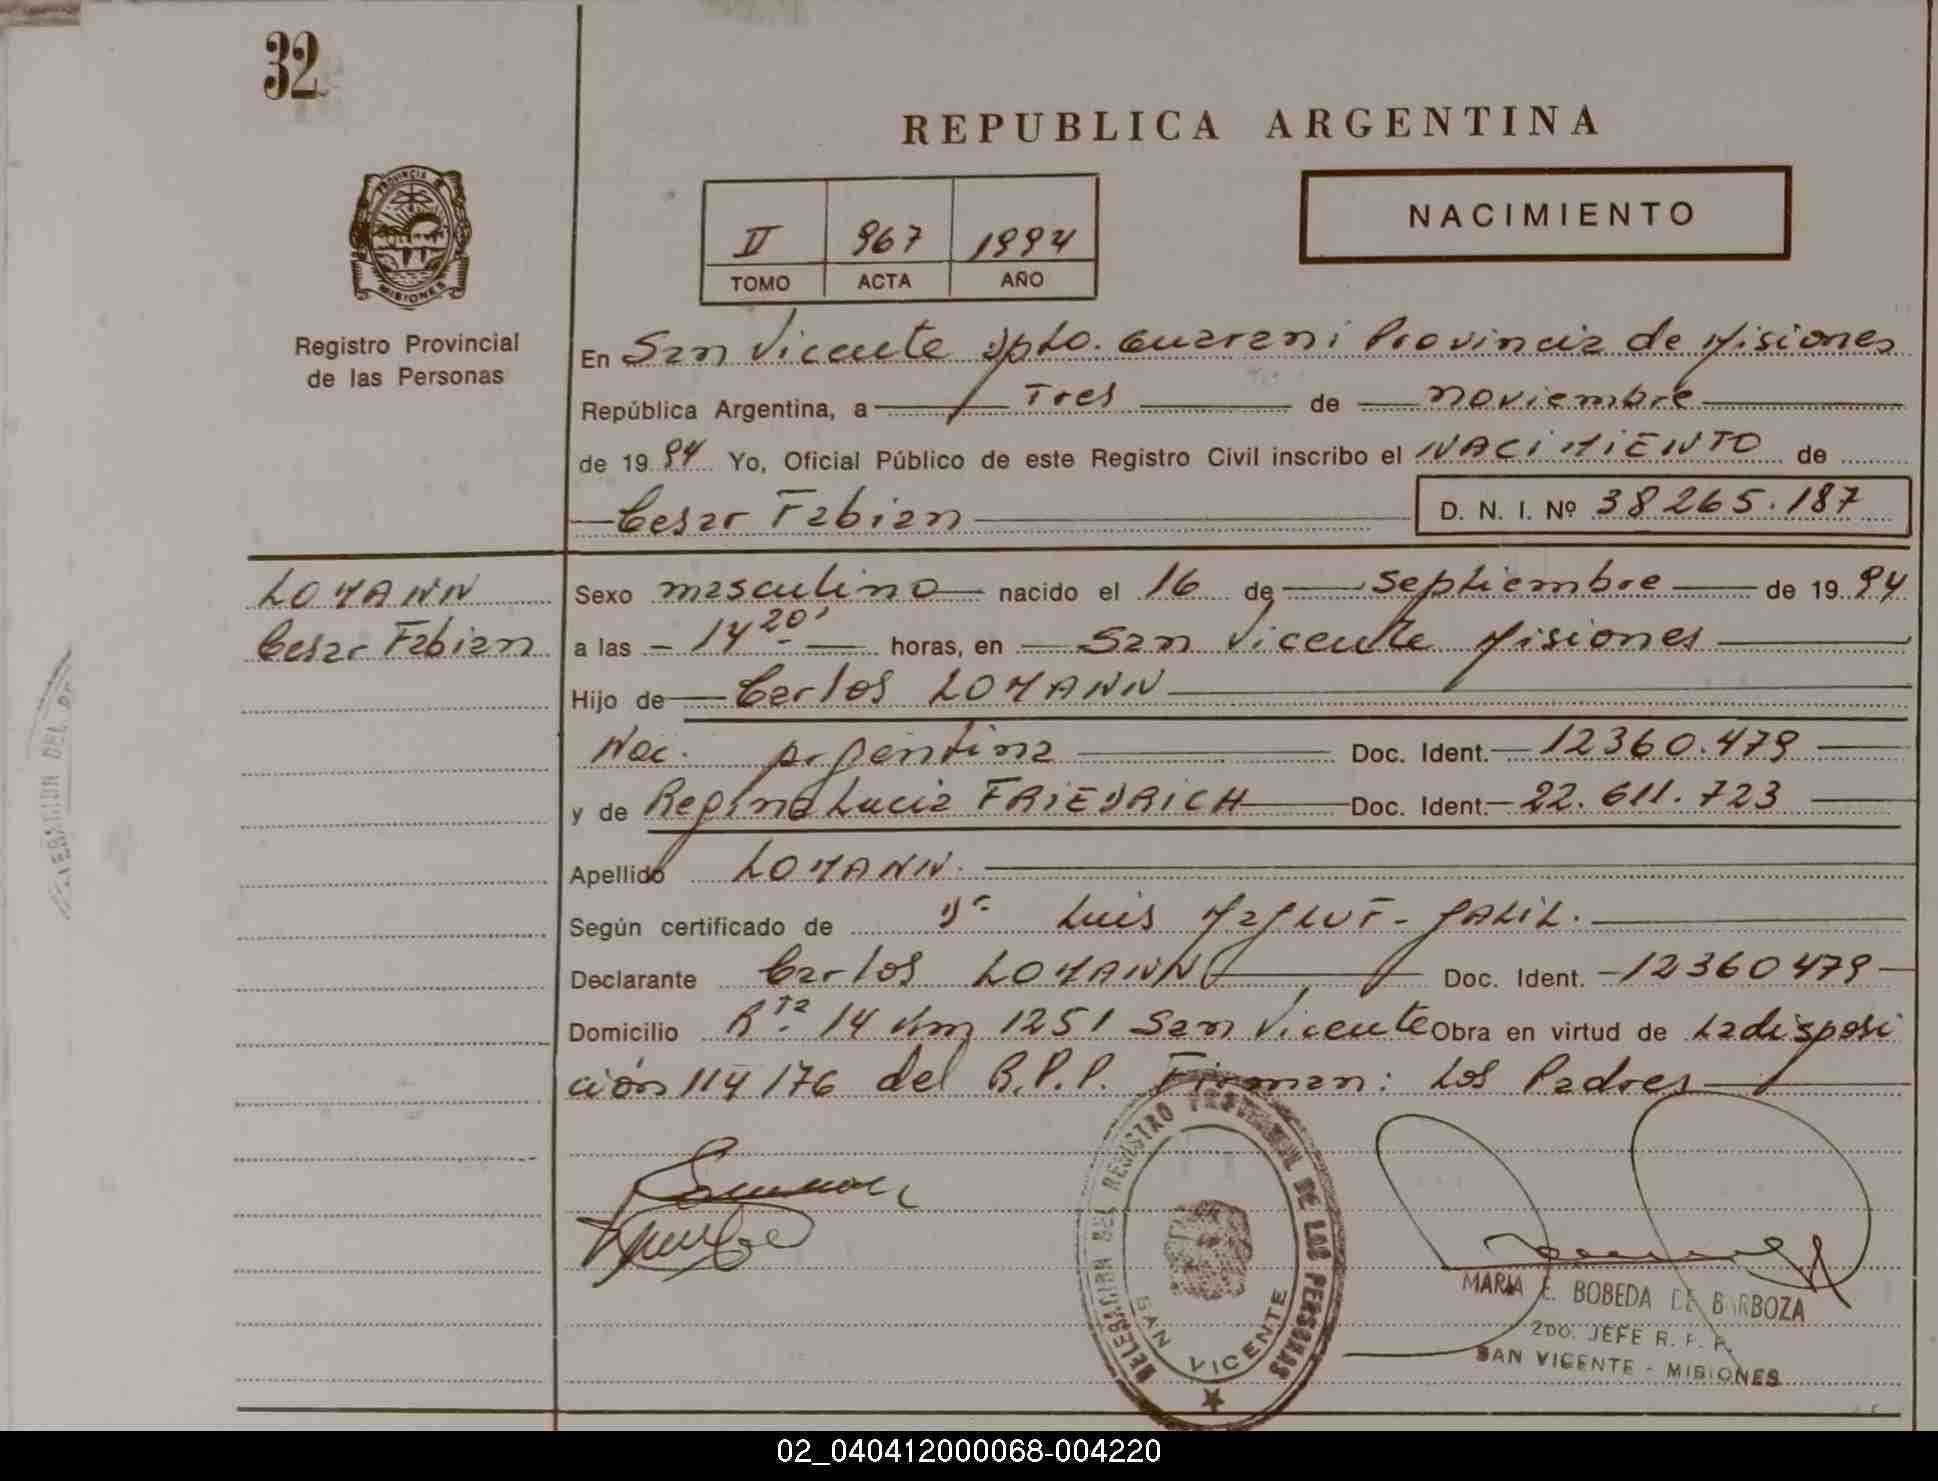 32
REPUBLICA ARGENTINA
PROVINCIA DE
MISIONES
Registro Provincial
de las Personas
II 967 1994
TOMO ACTA AÑO
NACIMIENTO
En San Vicente Dpto. Guarani Provincia de Misiones
República Argentina, a Tres de noviembre
de 19 94 Yo, Oficial Público de este Registro Civil inscribo el NACIMIENTO de
Cesar Fabian D. N. I. Nº 38 265.187
LOMANN
Cesar Fabian
Sexo masculino nacido el 16 de septiembre de 19 94
a las 14 20' horas, en San Vicente Misiones
Hijo de Carlos LOMANN
Nac. Argentina Doc. Ident. 12360.479
y de Regina Lucia FRIEDRICH Doc. Ident. 22.611.723
Apellido LOMANN.
Según certificado de Dr Luis GALIL.
Declarante Carlos LOMANN Doc. Ident. 12360479
Domicilio Rta 14 km 1251 San Vicente Obra en virtud de La disposi
ción 114/76 del R.P.P. Firman: Los Padres
DELEGACION DEL REGISTRO PROVINCIAL DE LAS PERSONAS
SAN VICENTE
MARIA E. BOBEDA DE BARBOZA
2DO. JEFE R. P. P.
SAN VICENTE - MISIONES
02_040412000068-004220